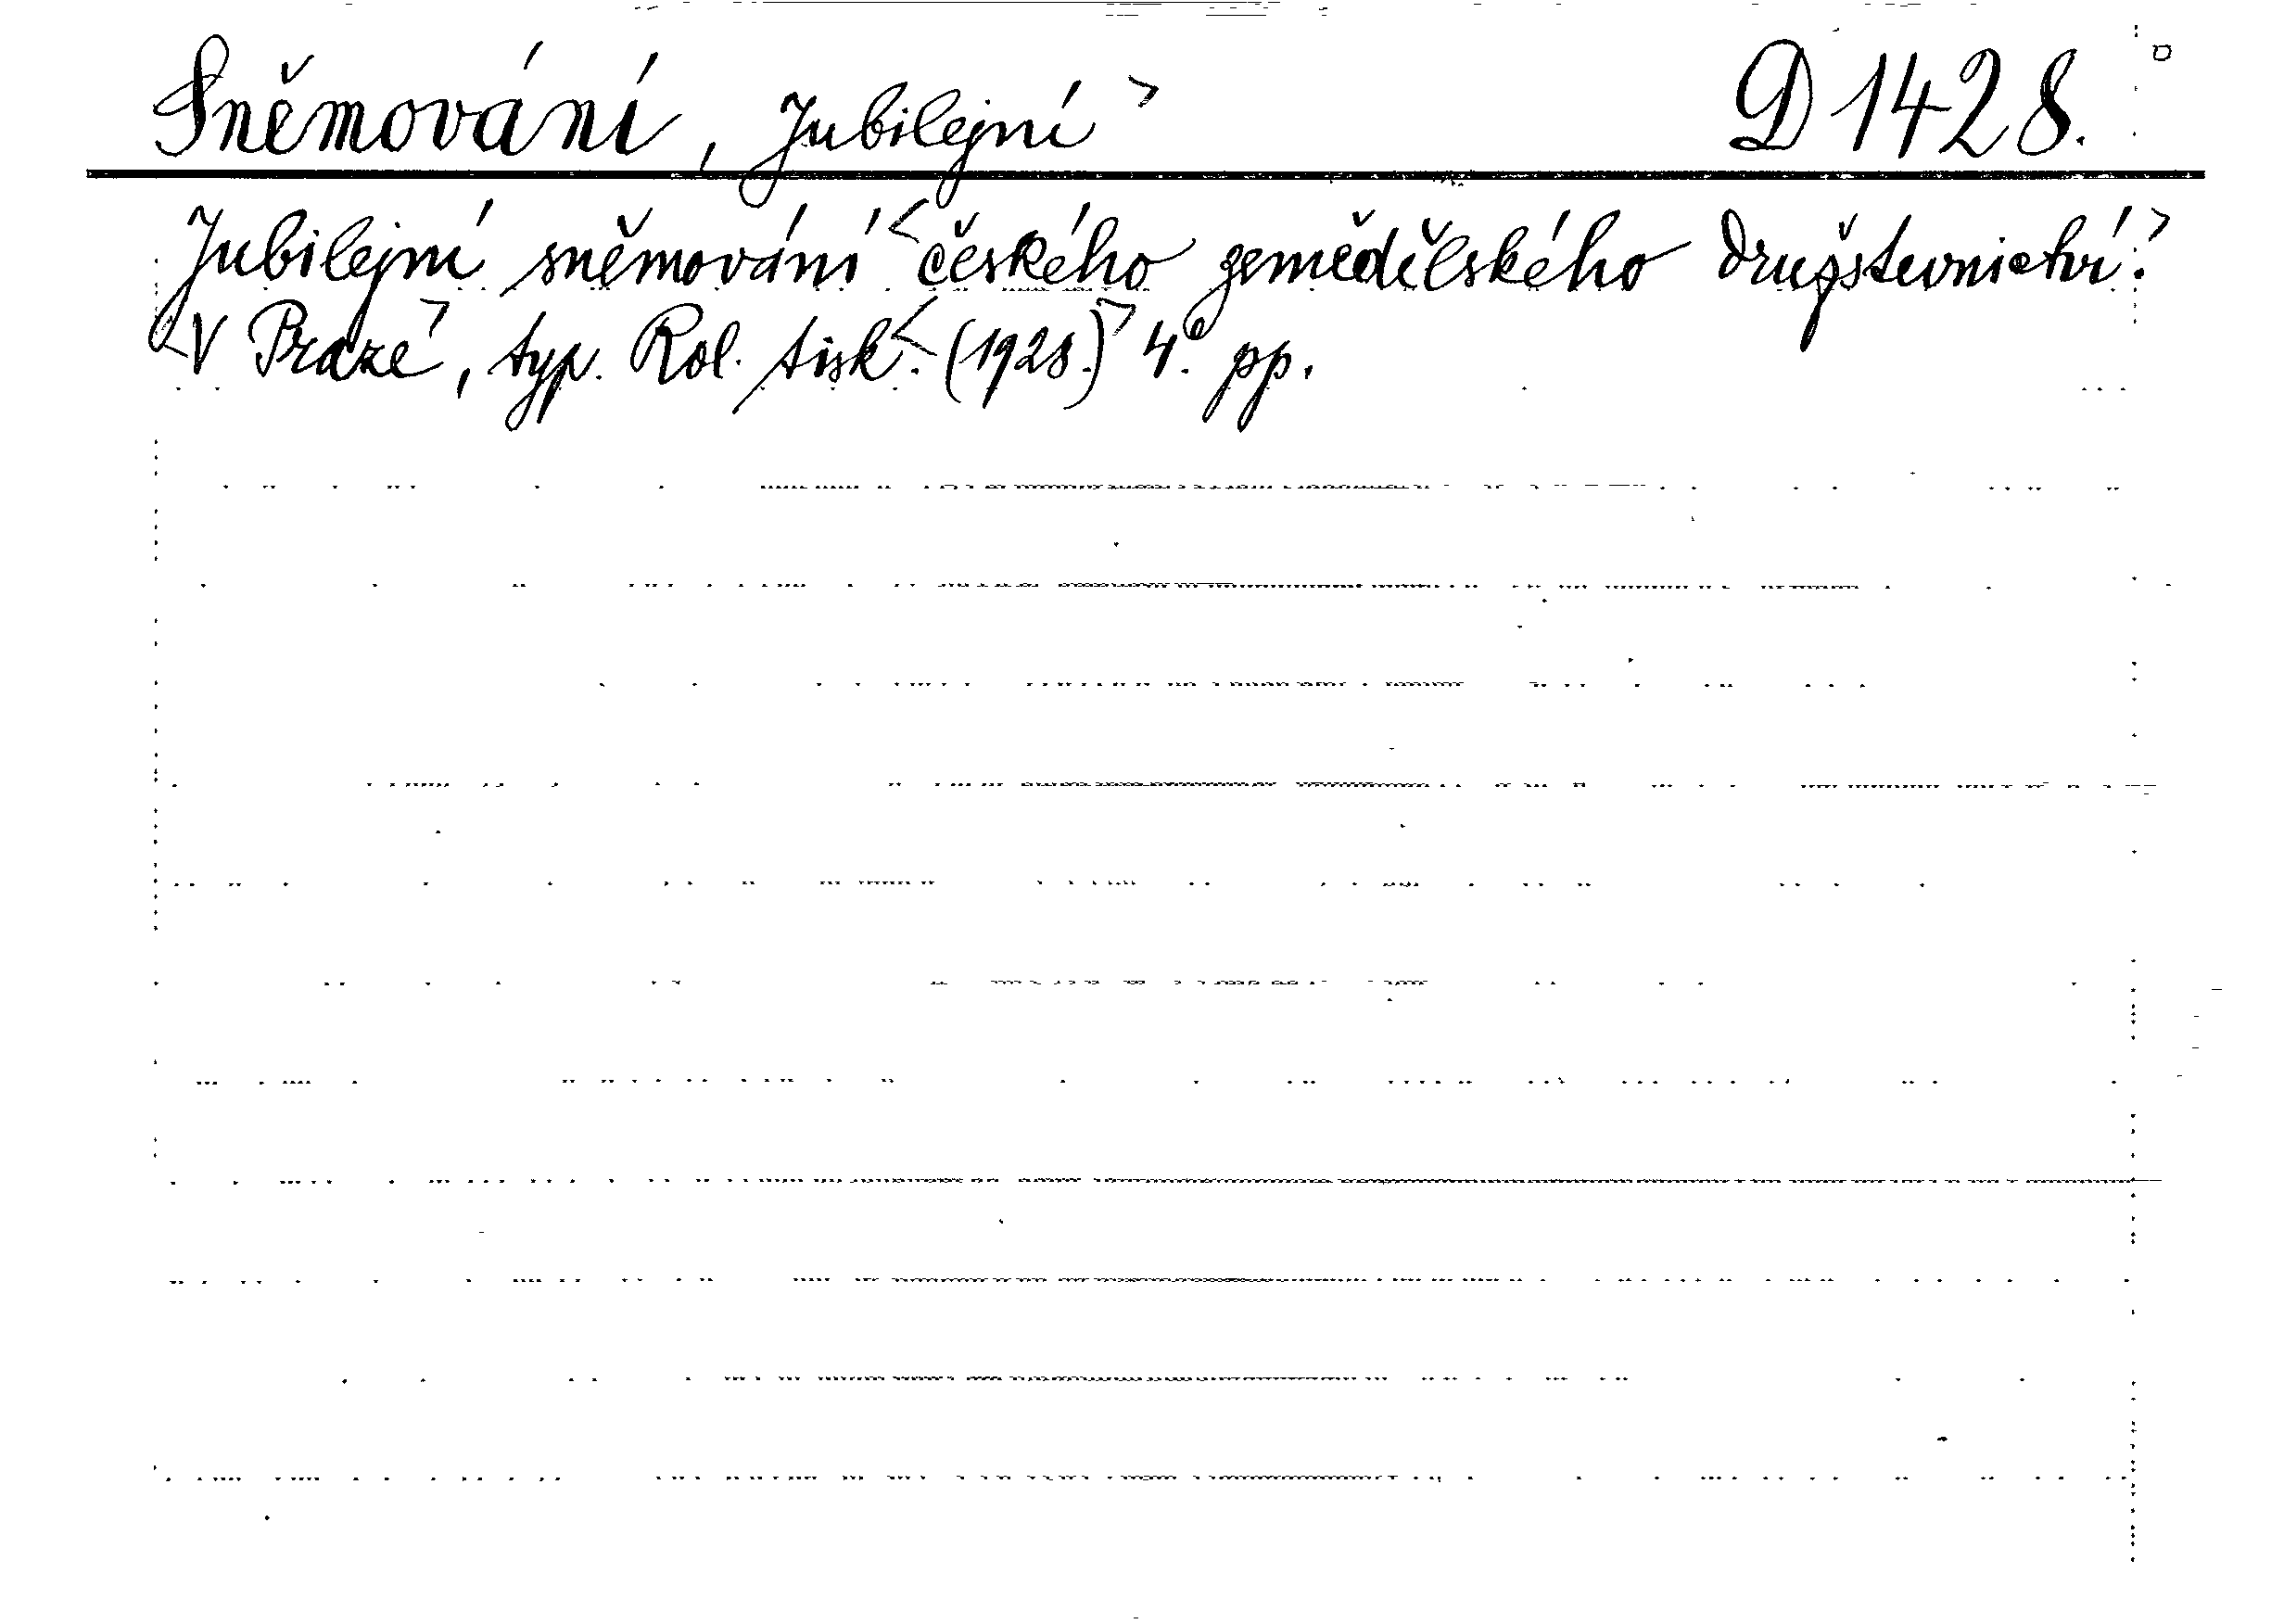 Sněmování, Jubilejní > D 1428.
Jubilejní sněmování < českého zemědělského družstevnictví. >
< V Praze >, typ. Rol. tisk. < (1928.) > 4° pp.